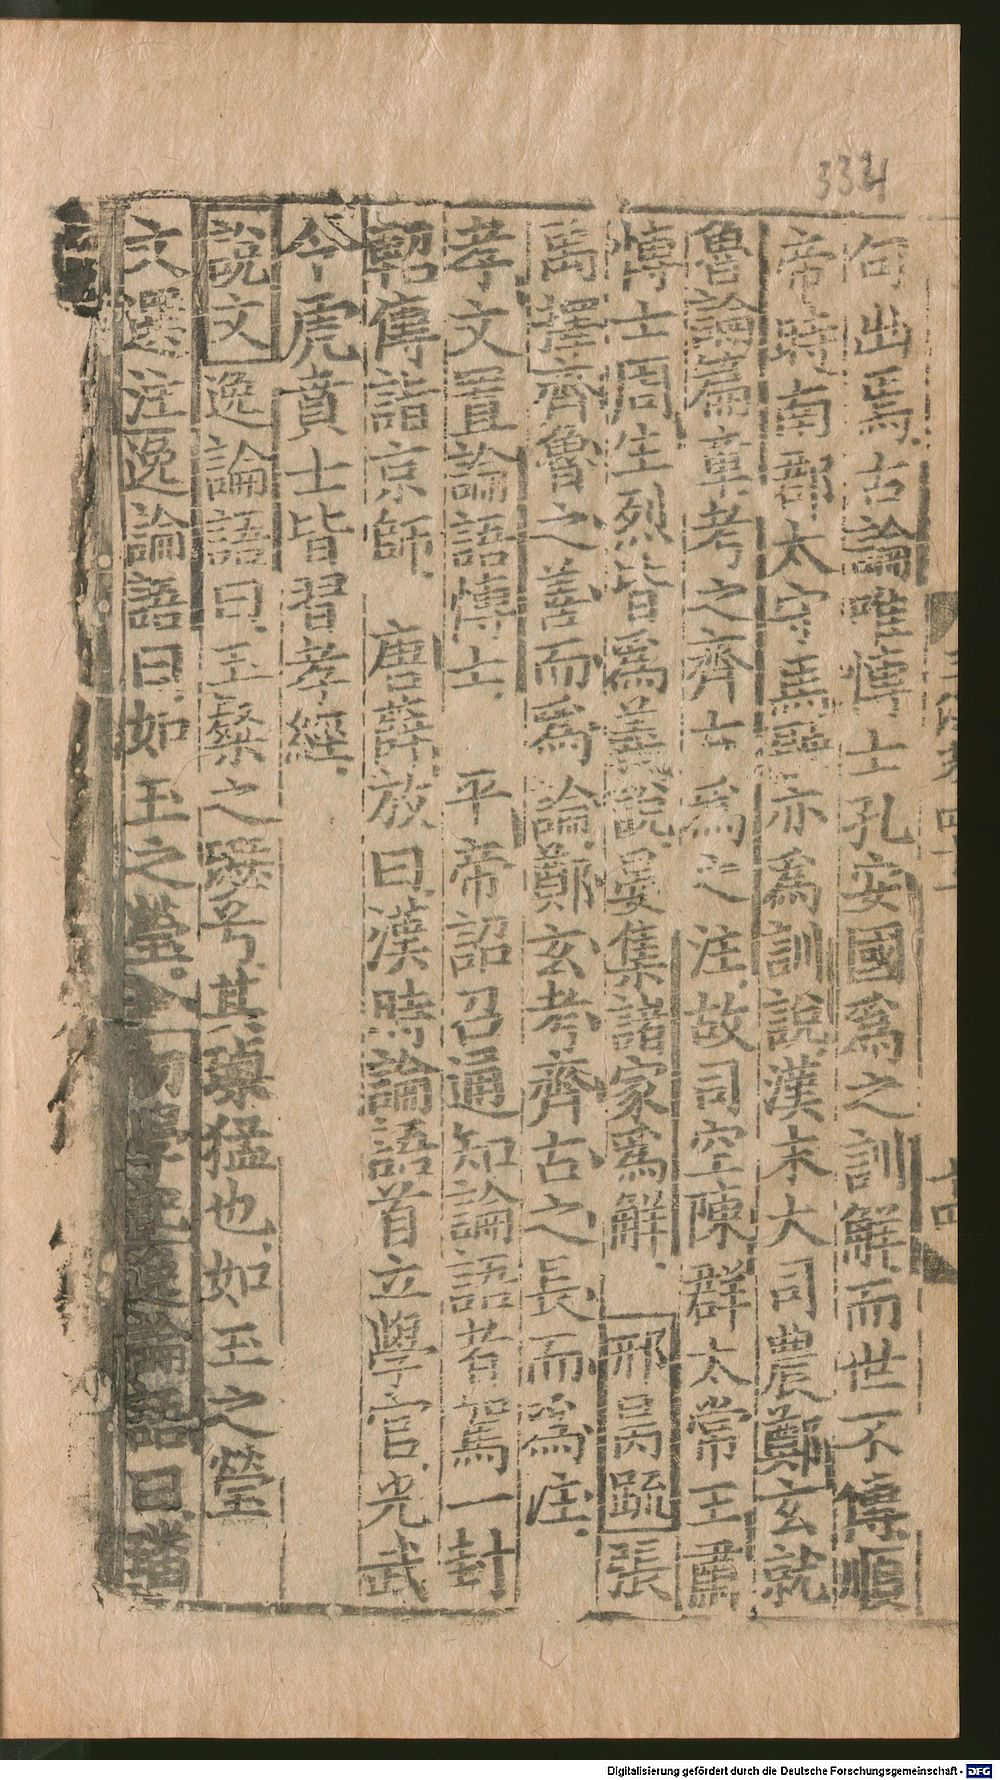 334
句出焉古論唯博士孔安國爲之訓解而世不傳順
帝時南郡太守馬融亦爲訓說漢末大司農鄭玄就
魯論篇章考之齊古爲之注故司空陳群太常王肅
博士周生烈皆爲義說晏集諸家爲解 邢昺疏張
禹擇齊魯之善而爲論鄭玄考齊古之長而爲注
孝文置論語博士 平帝詔召通知論語者駕一封
軺傳詣京師 唐薛放曰漢時論語首立學官光武
令虎賁士皆習孝經
說文逸論語曰玉粲之瑟兮其瑮猛也如玉之瑩
文選注逸論語曰如玉之瑩 初學記逸論語曰璠
Digitalisierung gefördert durch die Deutsche Forschungsgemeinschaft - DFG